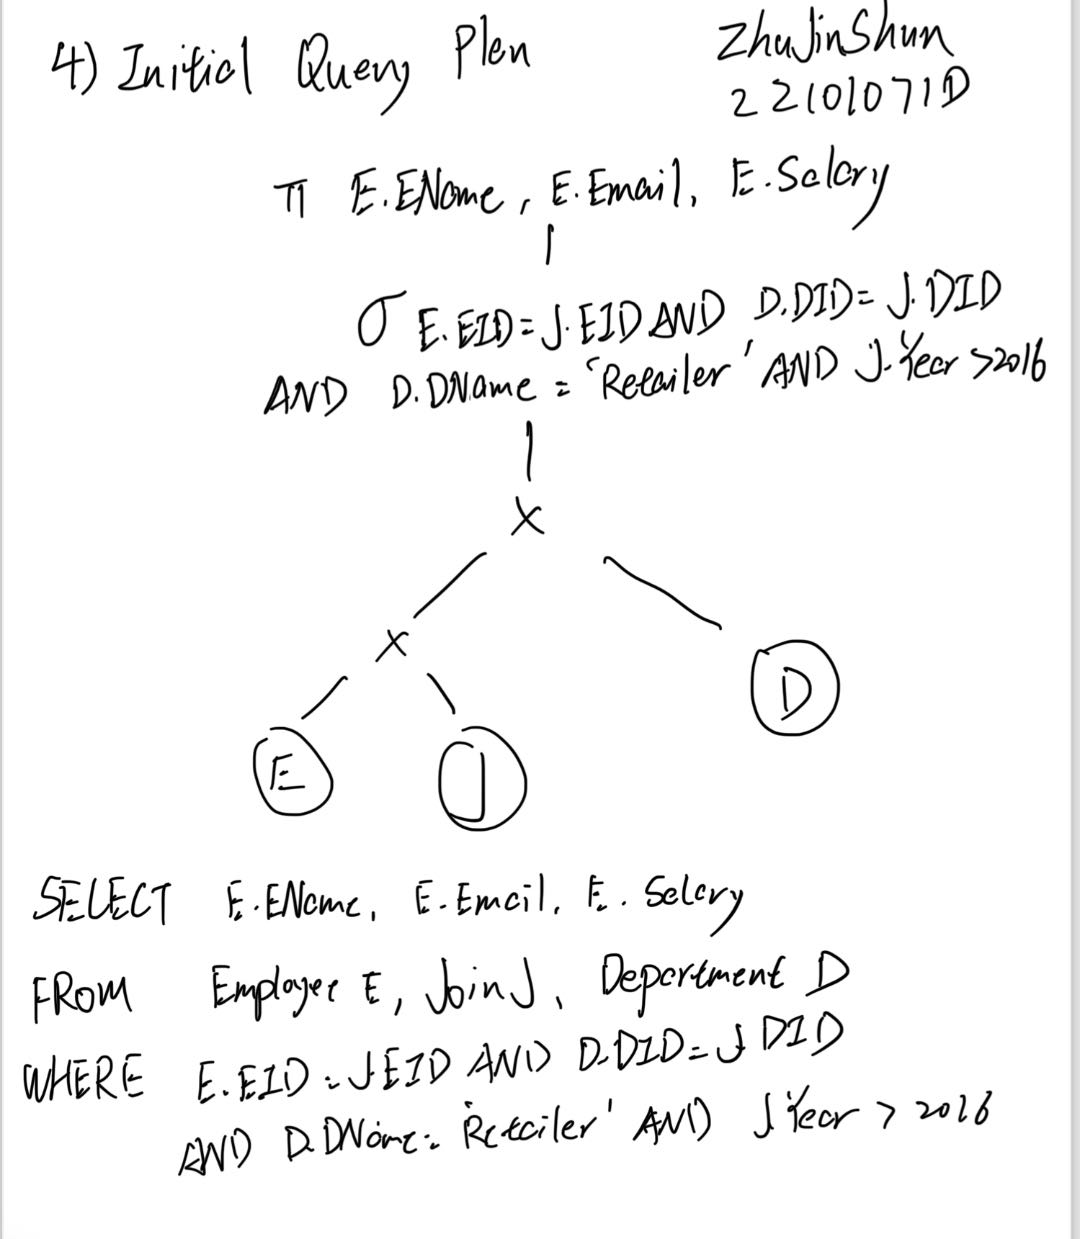 4) Initial Query Plan
ZhuJinShun
22101071D
π E.EName, E.Email, E.Salary
σ E.EID = J.EID AND D.DID = J.DID
AND D.DName = 'Retailer' AND J.Year >2016
X
X
D
E
J
SELECT E.EName, E.Email, E.Salary
FROM Employee E, Join J, Department D
WHERE E.EID = J EID AND D.DID = J DID
AND D.DName = 'Retailer' AND J Year > 2016